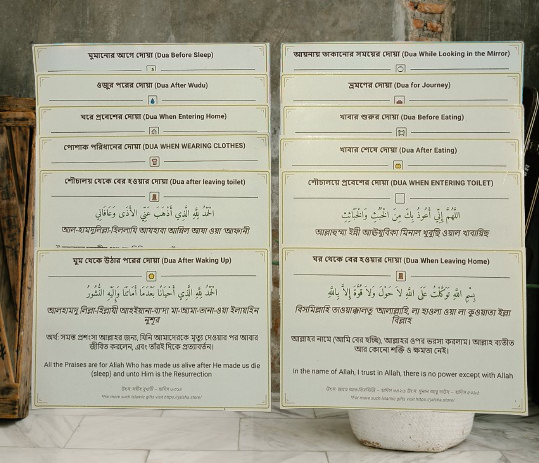 ঘুমানোর আগে দোয়া (Dua Before Sleep)
ওজুর পরের দোয়া (Dua After Wudu)
ঘরে প্রবেশের দোয়া (Dua When Entering Home)
পোশাক পরিধানের দোয়া (DUA WHEN WEARING CLOTHES)
শৌচালয় থেকে বের হওয়ার দোয়া (Dua after leaving toilet)
الْحَمْدُ لِلَّهِ الَّذِي أَذْهَبَ عَنِّي الْأَذَى وَعَافَانِي
আল-হামদুলিল্লা-হিললাযি আযহাবা আন্নিল আযা ওয়া 'আফানী
ঘুম থেকে উঠার পরের দোয়া (Dua After Waking Up)
الْحَمْدُ لِلَّهِ الَّذِي أَحْيَانَا بَعْدَمَا أَمَاتَنَا وَإِلَيْهِ النُّشُورُ
আলহামদু লিল্লা-হিল্লাযী আহইয়ানা-বা'দা মা-আমা-তানা-ওয়া ইলাযহিন
নুশূর
অর্থ: সমস্ত প্রশংসা আল্লাহর জন্য, যিনি আমাদেরকে মৃত্যু দেওয়ার পর আবার
জীবিত করলেন, এবং তাঁরই দিকে প্রত্যাবর্তন।
All the Praises are for Allah Who has made us alive after He made us die
(sleep) and unto Him is the Resurrection
আয়নায় তাকানোর সময়ের দোয়া (Dua While Looking in the Mirror)
ভ্রমণের দোয়া (Dua for Journey)
খাবার শুরুর দোয়া (Dua Before Eating)
খাবার শেষে দোয়া (Dua After Eating)
শৌচালয়ে প্রবেশের দোয়া (DUA WHEN ENTERING TOILET)
اللَّهُمَّ إِنِّي أَعُوذُ بِكَ مِنَ الْخُبُثِ وَالْخَبَائِثِ
আল্লাহুম্মা ইন্নী আঊযুবিকা মিনাল খুবুছি ওয়াল খাবায়িছ
ঘর থেকে বের হওয়ার দোয়া (Dua When Leaving Home)
بِسْمِ اللَّهِ تَوَكَّلْتُ عَلَى اللَّهِ لَا حَوْلَ وَلَا قُوَّةَ إِلَّا بِاللَّهِ
বিসমিল্লাহি তাওয়াক্কালতু 'আলাল্লাহি, লা হাওলা ওয়া লা কুওয়াতা ইল্লা
বিল্লাহ
আল্লাহর নামে (আমি বের হচ্ছি), আল্লাহর ওপর ভরসা করলাম। আল্লাহ ব্যতীত
আর কোনো শক্তি ও ক্ষমতা নেই।
In the name of Allah, I trust in Allah, there is no power except with Allah